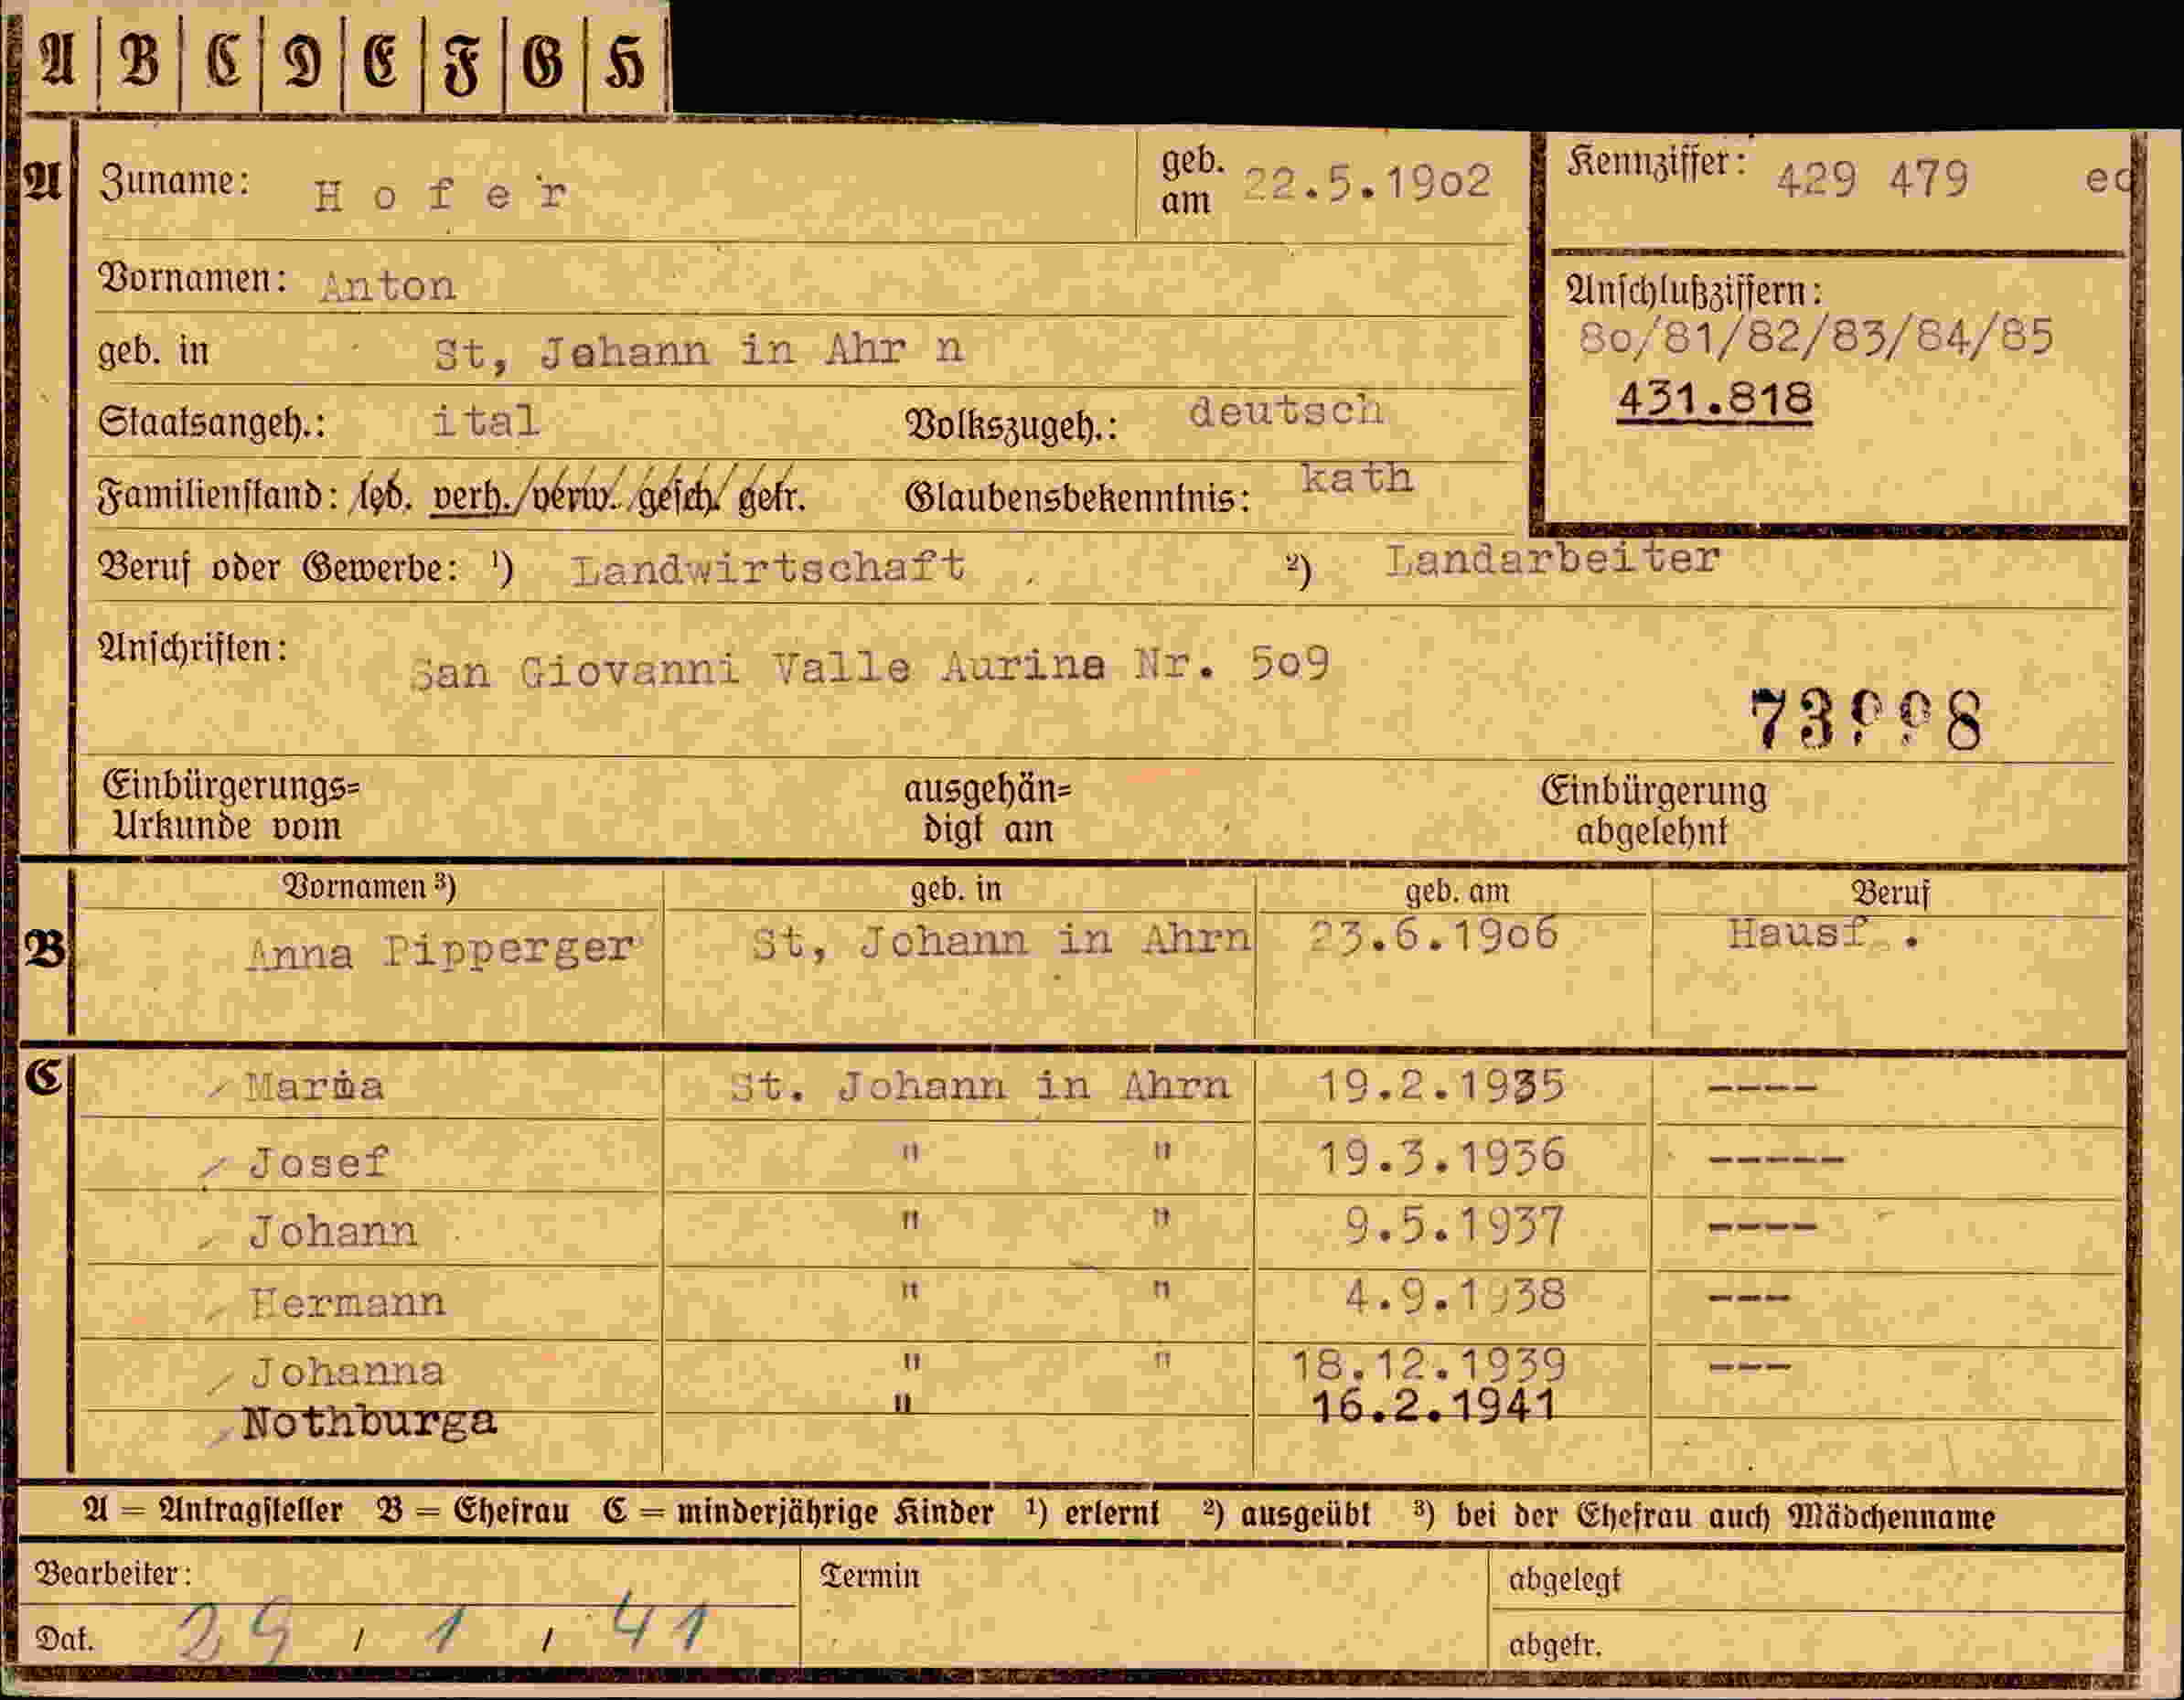 A B C D E F G H
A Zuname: Hofer geb. am 22.5.1902 Kennziffer: 429 479
Vornamen: Anton
Anschlußziffern:
80/81/82/83/84/85
431.818
geb. in St, Johann in Ahr n
Staatsangeh.: ital Volkszugeh.: deutsch
Familienstand: led. verh. verw. gesch. getr. Glaubensbekenntnis: kath
Beruf oder Gewerbe: ¹) Landwirtschaft ²) Landarbeiter
Anschriften: San Giovanni Valle Aurina Nr. 509
Einbürgerungs= ausgehän= Einbürgerung
Urkunde vom digt am abgelehnt
Vornamen ³) geb. in geb. am Beruf
B Anna Pipperger St, Johann in Ahrn 23.6.1906 Hausf .
C Maria St. Johann in Ahrn 19.2.1935 ----
Josef " " 19.3.1936 -----
Johann " " 9.5.1937 ----
Hermann " " 4.9.1938 ---
Johanna " " 18.12.1939 ---
Nothburga " 16.2.1941
A = Antragsteller B = Ehefrau C = minderjährige Kinder ¹) erlernt ²) ausgeübt ³) bei der Ehefrau auch Mädchenname
Bearbeiter: Termin abgelegt
Dat. 29 , 1 , 41 abgetr.